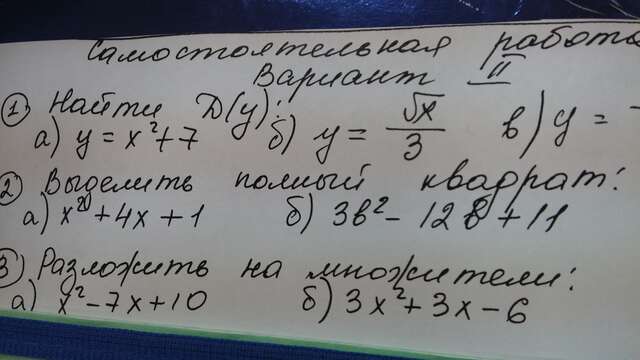 Самостоятельная работа
Вариант II
1 Найти D(y):
а) y = x² + 7 б) y = √x/3 в) y =
2 Выделить полный квадрат:
а) x² + 4x + 1 б) 3в² - 12в + 11
3 Разложить на множители:
а) x² - 7x + 10 б) 3x² + 3x - 6